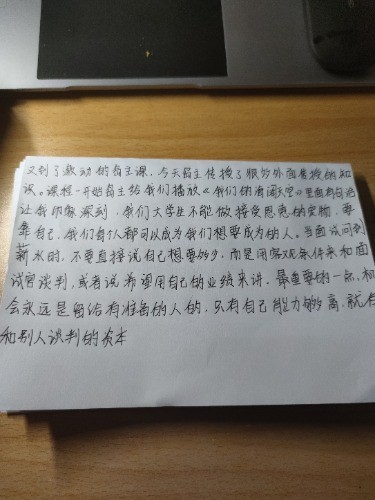 又到了激动的自主课,今天自主传授了很多外面看授的知
识。课程一开始自主给我们播放《我们的清闺天空》里面有句话
让我印象深刻,我们大学生不能做接受恩惠的宠物,要
靠自己,我们每个人都可以成为我们想要成为的人。当面谈问到
薪水时,不要直接说自己想要多少,而是用客观条件来和面
试官谈判,或者说希望用自己的业绩来讲。最重要的一点,机
会永远是留给有准备的人的,只有自己能力够高,就有
和别人谈判的资本